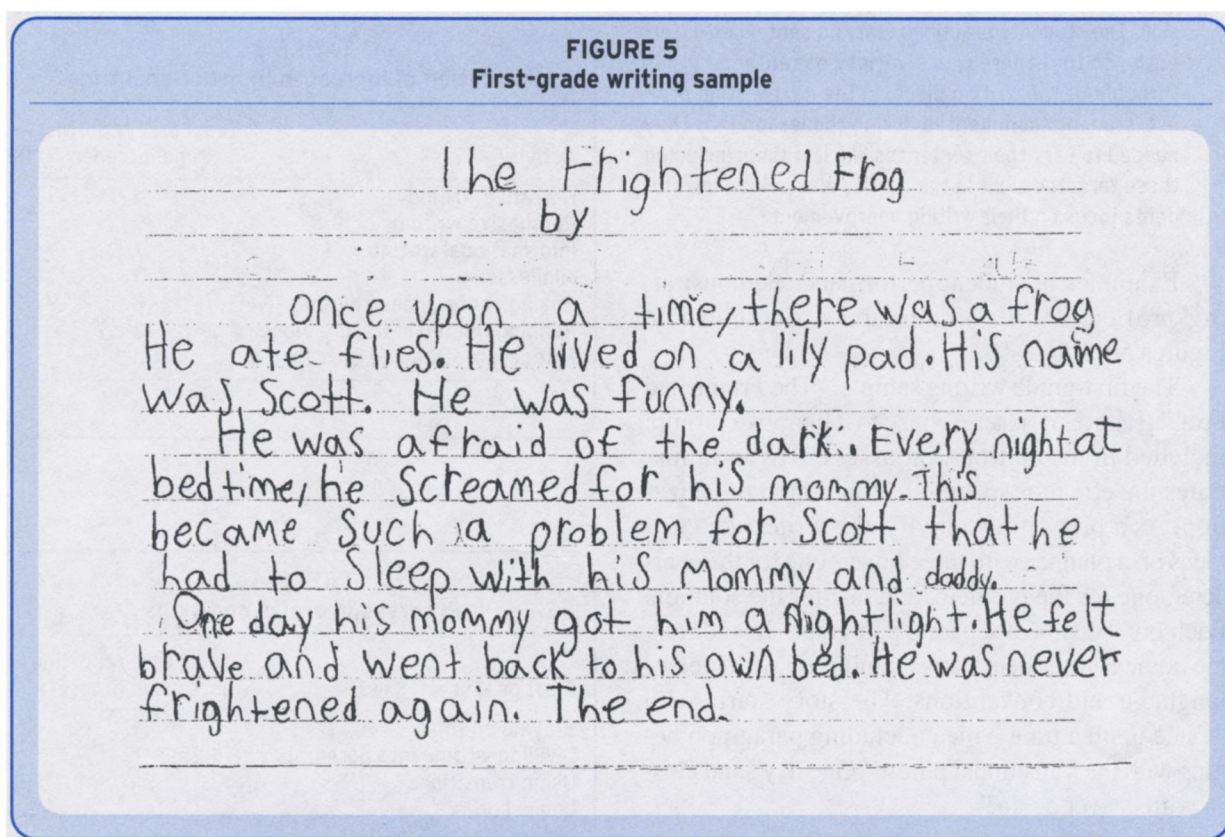 FIGURE 5
First-grade writing sample
The Frightened frog
by
once upon a time, there was a frog
He ate flies. He lived on a lily pad. His name
was Scott. He was funny.
He was afraid of the dark. Every night at
bedtime he screamed for his mommy. This
became such a problem for Scott that he
had to sleep with his mommy and daddy.
One day his mommy got him a nightlight. He felt
brave and went back to his own bed. He was never
frightened again. The end.